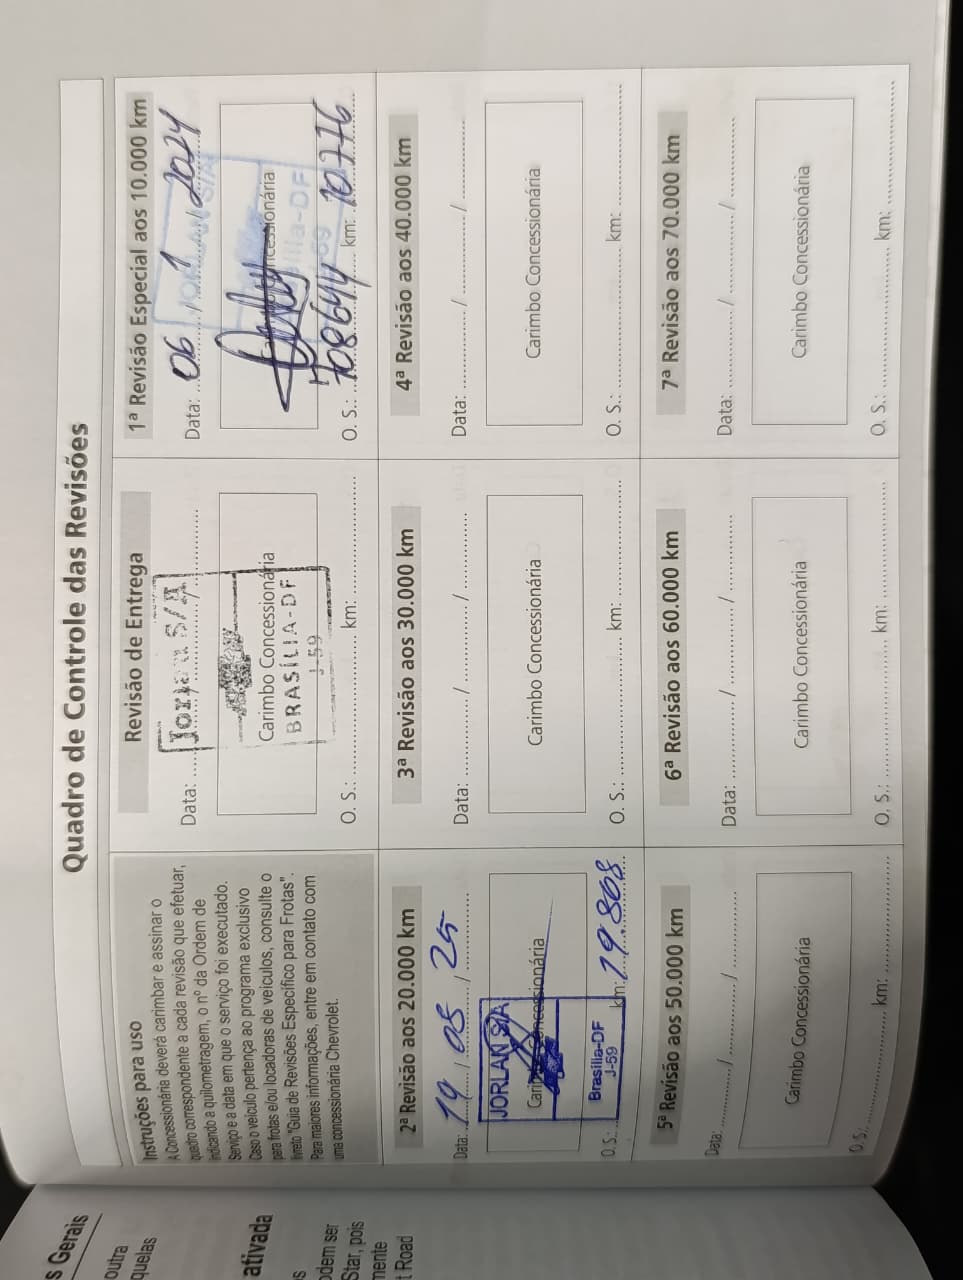 Quadro de Controle das Revisões
Instruções para uso
A Concessionária deverá carimbar e assinar o
quadro correspondente a cada revisão que efetuar,
indicando a quilometragem, o nº da Ordem de
Serviço e a data em que o serviço foi executado.
Caso o veículo pertença ao programa exclusivo
para frotas e/ou locadoras de veículos, consulte o
livreto "Guia de Revisões Específico para Frotas".
Para maiores informações, entre em contato com
uma concessionária Chevrolet.
Revisão de Entrega
Data: ....../....../......
Jorlan S/A
Carimbo Concessionária
BRASÍLIA-DF
J-59
O. S.: ............ km: ............
1ª Revisão Especial aos 10.000 km
Data: 06 / 1 / 2024
JORLAN S/A
Carimbo Concessionária
Brasília-DF
J-59
O. S.: 108644 km: 10776
2ª Revisão aos 20.000 km
Data: 19 / 08 / 25
JORLAN S/A
Carimbo Concessionária
Brasília-DF
J-59
O. S.: km: 19.808
3ª Revisão aos 30.000 km
Data: ....../....../......
Carimbo Concessionária
O. S.: ............ km: ............
4ª Revisão aos 40.000 km
Data: ....../....../......
Carimbo Concessionária
O. S.: ............ km: ............
5ª Revisão aos 50.000 km
Data: ....../....../......
Carimbo Concessionária
O. S.: ............ km: ............
6ª Revisão aos 60.000 km
Data: ....../....../......
Carimbo Concessionária
O. S.: ............ km: ............
7ª Revisão aos 70.000 km
Data: ....../....../......
Carimbo Concessionária
O. S.: ............ km: ............
s Gerais
outra
quelas
ativada
os
odem ser
Star, pois
mente
t Road